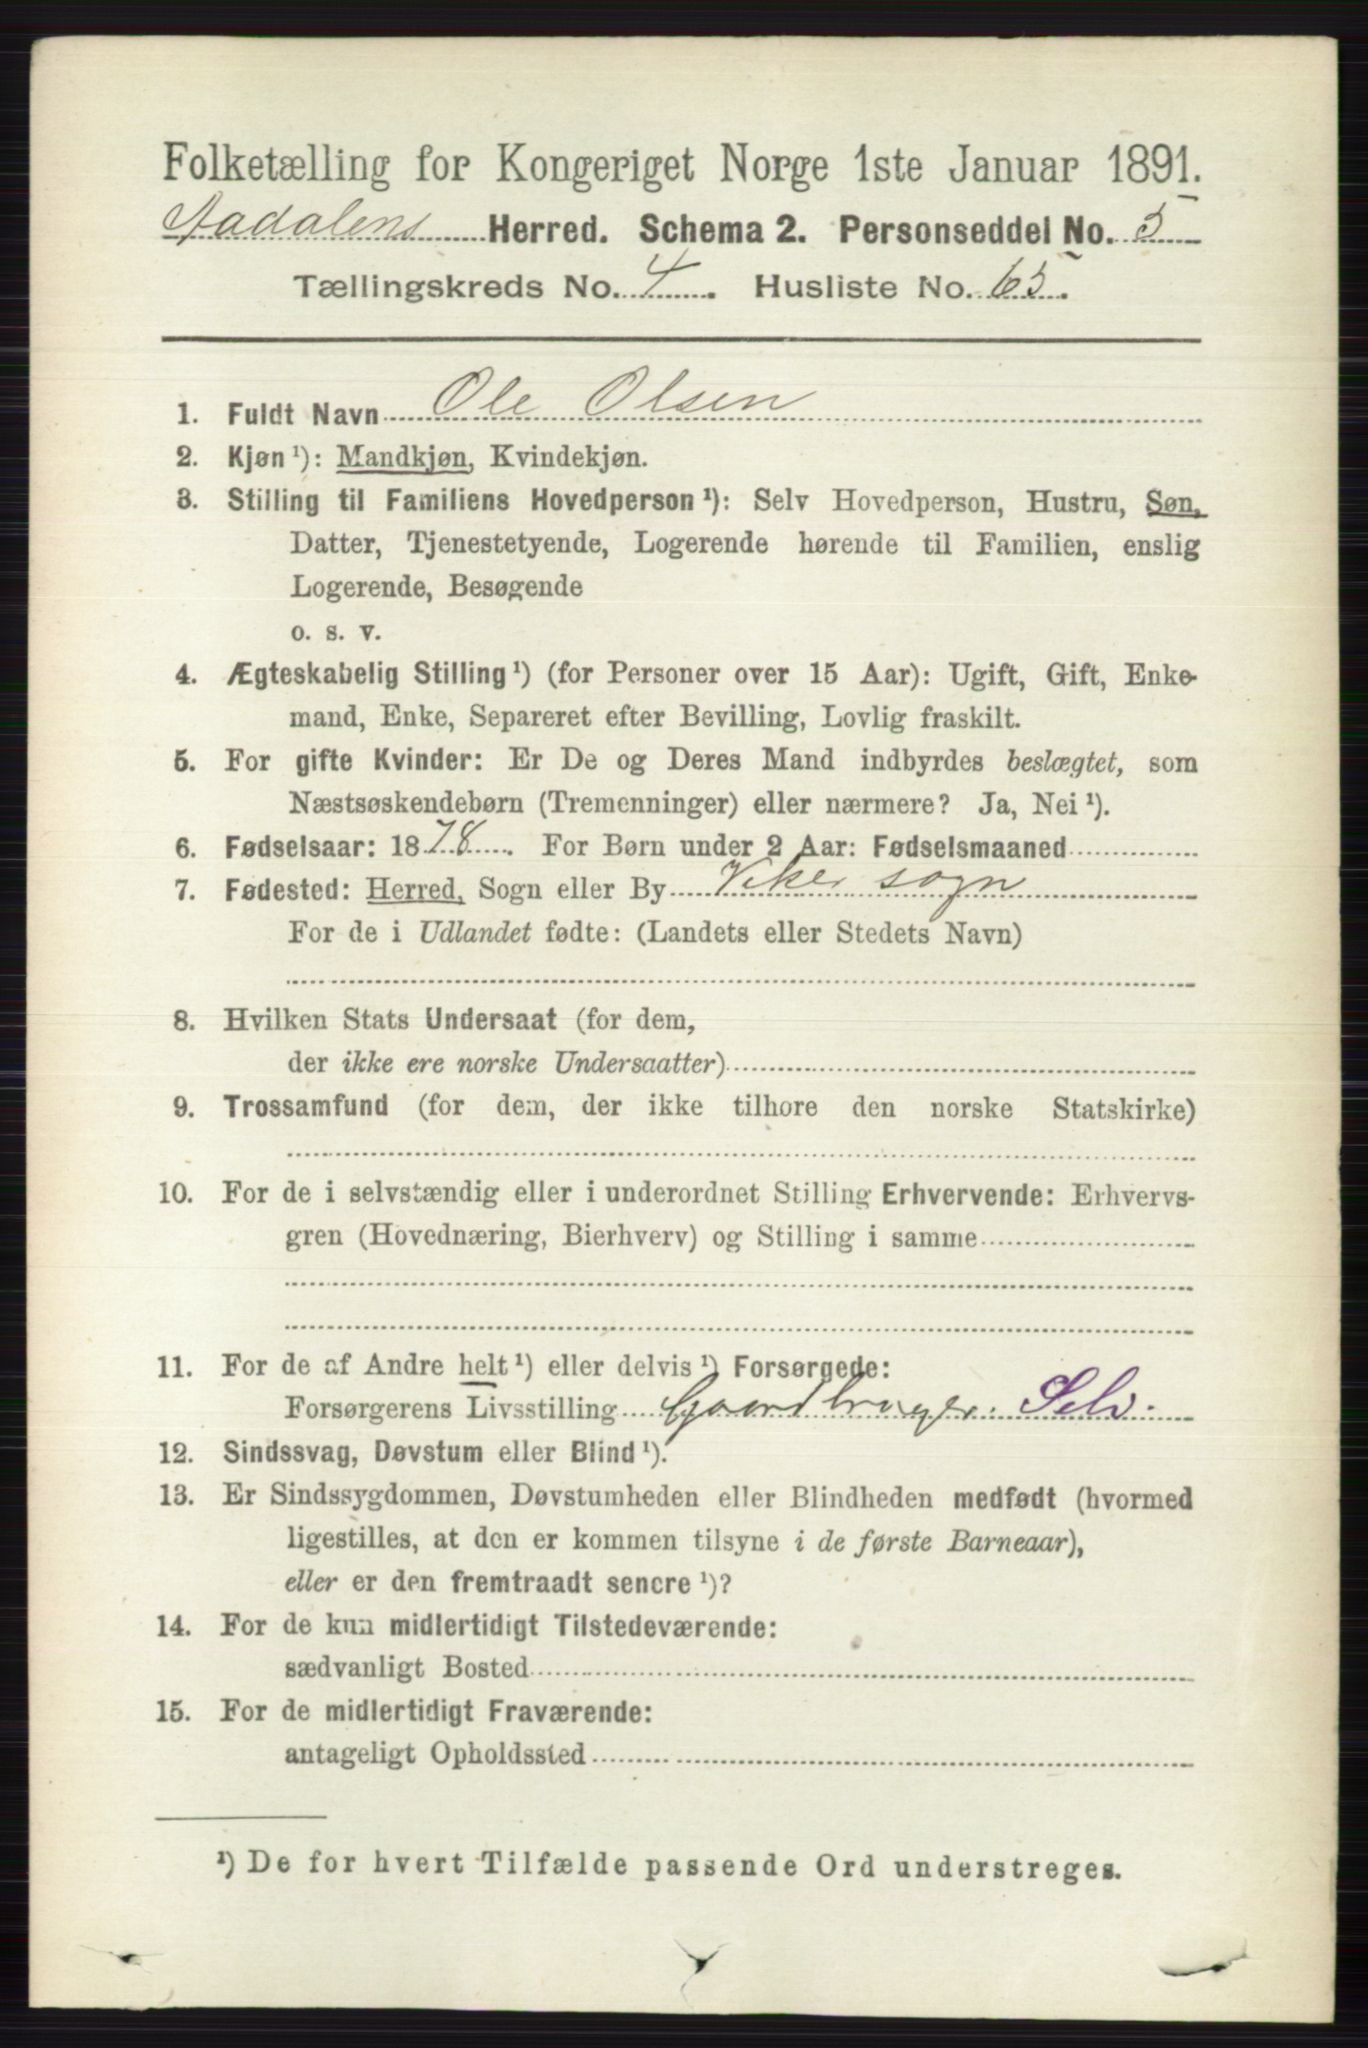 Folketælling for Kongeriget Norge 1ste Januar 1891.
Aadalens Herred. Schema 2. Personseddel No. 5
Tællingskreds No. 4. Husliste No. 65.
1. Fuldt Navn Ole Olsen
2. Kjøn¹): Mandkjøn, Kvindekjøn.
3. Stilling til Familiens Hovedperson¹): Selv Hovedperson, Hustru, Søn,
Datter, Tjenestetyende, Logerende hørende til Familien, enslig
Logerende, Besøgende
o. s. v.
4. Ægteskabelig Stilling¹) (for Personer over 15 Aar): Ugift, Gift, Enke-
mand, Enke, Separeret efter Bevilling, Lovlig fraskilt.
5. For gifte Kvinder: Er De og Deres Mand indbyrdes beslægtet, som
Næstsøskendebørn (Tremenninger) eller nærmere? Ja, Nei¹).
6. Fødselsaar: 1878. For Børn under 2 Aar: Fødselsmaaned
7. Fødested: Herred, Sogn eller By Viker sogn
For de i Udlandet fødte: (Landets eller Stedets Navn)
8. Hvilken Stats Undersaat (for dem,
der ikke ere norske Undersaatter)
9. Trossamfund (for dem, der ikke tilhøre den norske Statskirke)
10. For de i selvstændig eller i underordnet Stilling Erhvervende: Erhvervs-
gren (Hovednæring, Bierhverv) og Stilling i samme
11. For de af Andre helt¹) eller delvis¹) Forsørgede:
Forsørgerens Livsstilling Gaardbruger. Selv.
12. Sindssvag, Døvstum eller Blind¹).
13. Er Sindssygdommen, Døvstumheden eller Blindheden medfødt (hvormed
ligestilles, at den er kommen tilsyne i de første Barneaar),
eller er den fremtraadt senere¹)?
14. For de kun midlertidigt Tilstedeværende:
sædvanligt Bosted
15. For de midlertidigt Fraværende:
antageligt Opholdssted
¹) De for hvert Tilfælde passende Ord understreges.